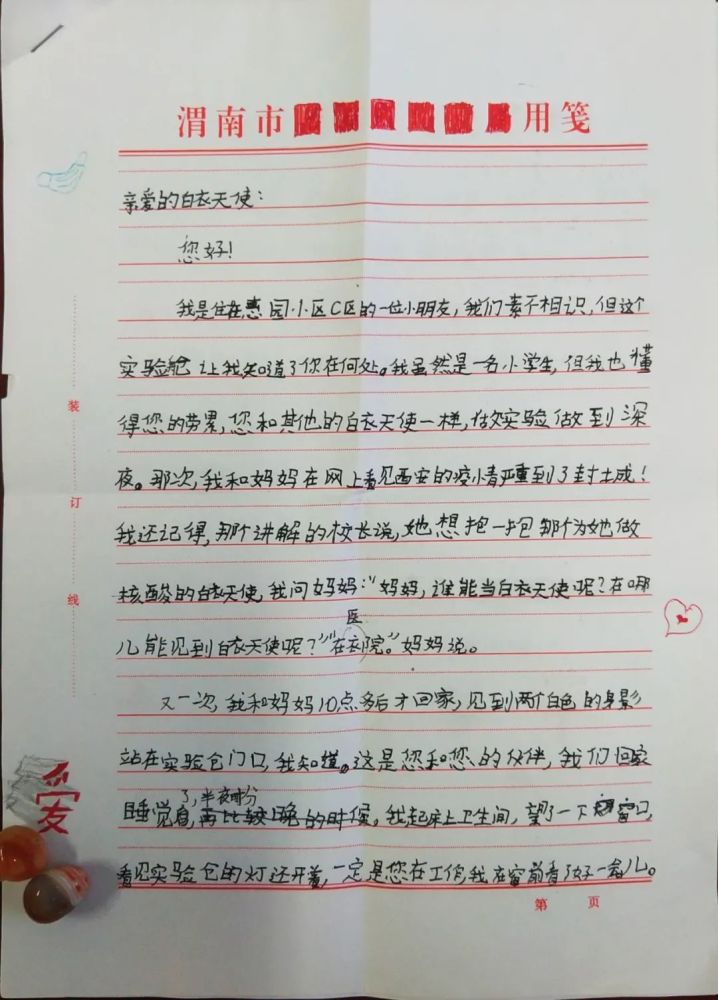 渭南市 用笺
亲爱的白衣天使:
您好!
我是住在惠园小区C区的一位小朋友,我们素不相识,但这个
实验舱让我知道了你在何处。我虽然是一名小学生,但我也懂
得您的劳累,您和其他的白衣天使一样,做实验做到深
夜。那次,我和妈妈在网上看见西安的疫情严重到了封城!
我还记得,那个讲解的校长说,她想抱一抱那个为她做
核酸的白衣天使,我问妈妈:“妈妈,谁能当白衣天使呢?在哪
儿能见到白衣天使呢?”“在医院。”妈妈说。
又一次,我和妈妈10点多后才回家,见到两个白色的身影
站在实验仓门口,我知道。这是您和您的伙伴,我们回家
睡觉了,半夜时分,我起床上卫生间,望了一下窗口,
看见实验仓的灯还开着,一定是您在工作,我在窗前看了好一会儿。
第 页
装
订
线
爱